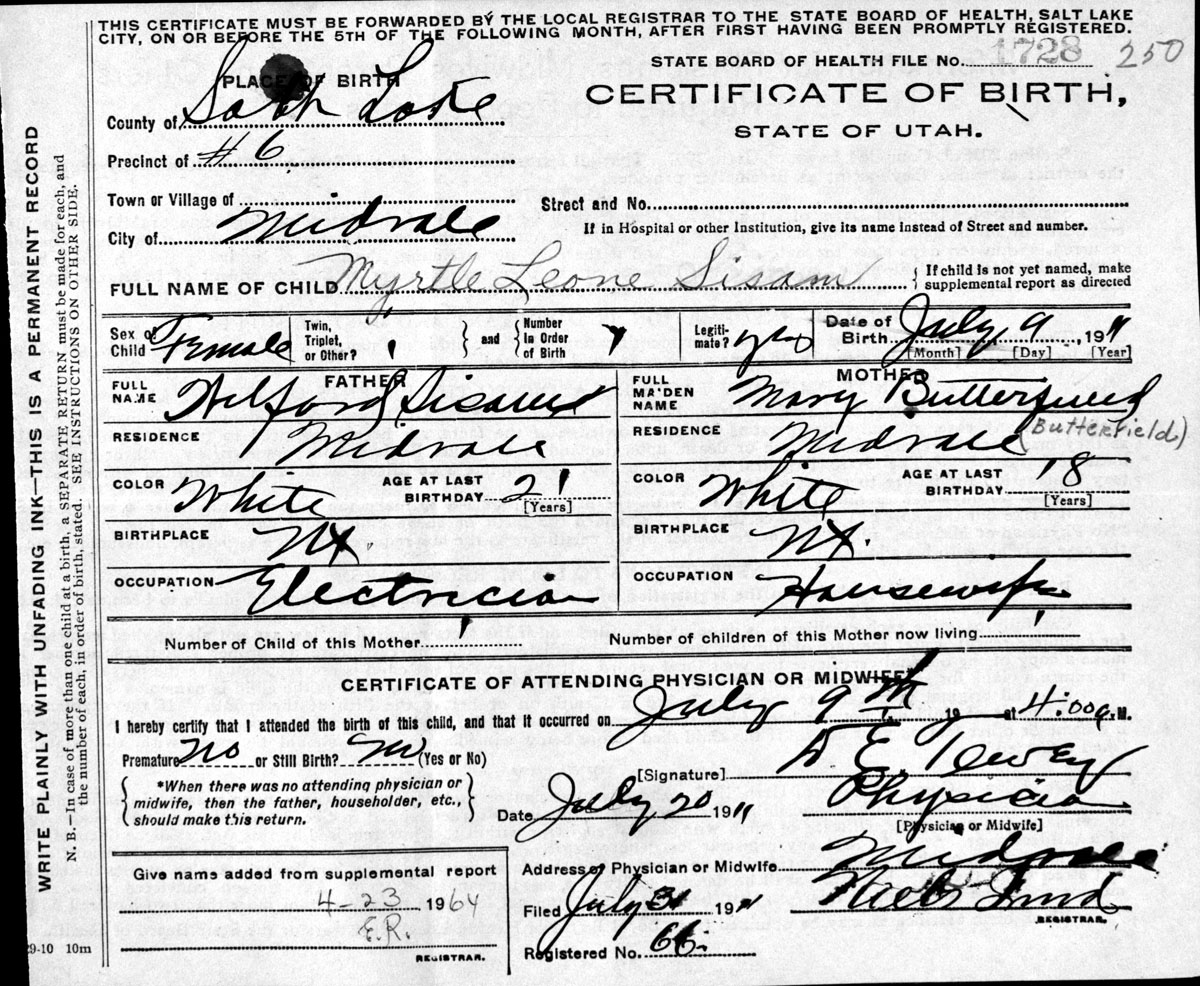 THIS CERTIFICATE MUST BE FORWARDED BY THE LOCAL REGISTRAR TO THE STATE BOARD OF HEALTH, SALT LAKE
CITY, ON OR BEFORE THE 5TH OF THE FOLLOWING MONTH, AFTER FIRST HAVING BEEN PROMPTLY REGISTERED.
STATE BOARD OF HEALTH FILE No. 1728 250
PLACE OF BIRTH
CERTIFICATE OF BIRTH,
STATE OF UTAH.
County of Salt Lake
Precinct of #6
Town or Village of
Street and No.
City of Midvale
If in Hospital or other Institution, give its name instead of Street and number.
FULL NAME OF CHILD Myrtle Leone Sisam
{If child is not yet named, make
supplemental report as directed
Sex of Child Female
Twin, Triplet, or Other? 1
and
Number in Order of Birth
Legiti-mate? yes
Date of Birth July 9, 1911
[Month] [Day] [Year]
FATHER
FULL NAME Wilford Sisam
RESIDENCE Midvale
COLOR White AGE AT LAST BIRTHDAY 21 [Years]
BIRTHPLACE
OCCUPATION Electricia
MOTHER
FULL MAIDEN NAME Mary
(Butterfield)
RESIDENCE Midvale
COLOR White AGE AT LAST BIRTHDAY 18 [Years]
BIRTHPLACE
OCCUPATION Housewife
Number of Child of this Mother 1 Number of children of this Mother now living 1
CERTIFICATE OF ATTENDING PHYSICIAN OR MIDWIFE
I hereby certify that I attended the birth of this child, and that it occurred on July 9th, 19 at 4:00 a.M.
Premature No or Still Birth? No (Yes or No)
{*When there was no attending physician or
midwife, then the father, householder, etc.,
should make this return.}
[Signature] E.
Date July 20 1911
Physicia
[Physician or Midwife]
Address of Physician or Midwife Midvale
Give name added from supplemental report
4-23 1964
E.R.
REGISTRAR.
Filed July 31 1911
Niels Lind
REGISTRAR.
Registered No. 66.
29-10 10m
WRITE PLAINLY WITH UNFADING INK—THIS IS A PERMANENT RECORD
N. B.—In case of more than one child at a birth, a SEPARATE RETURN must be made for each, and
the number of each, in order of birth, stated. SEE INSTRUCTIONS ON OTHER SIDE.